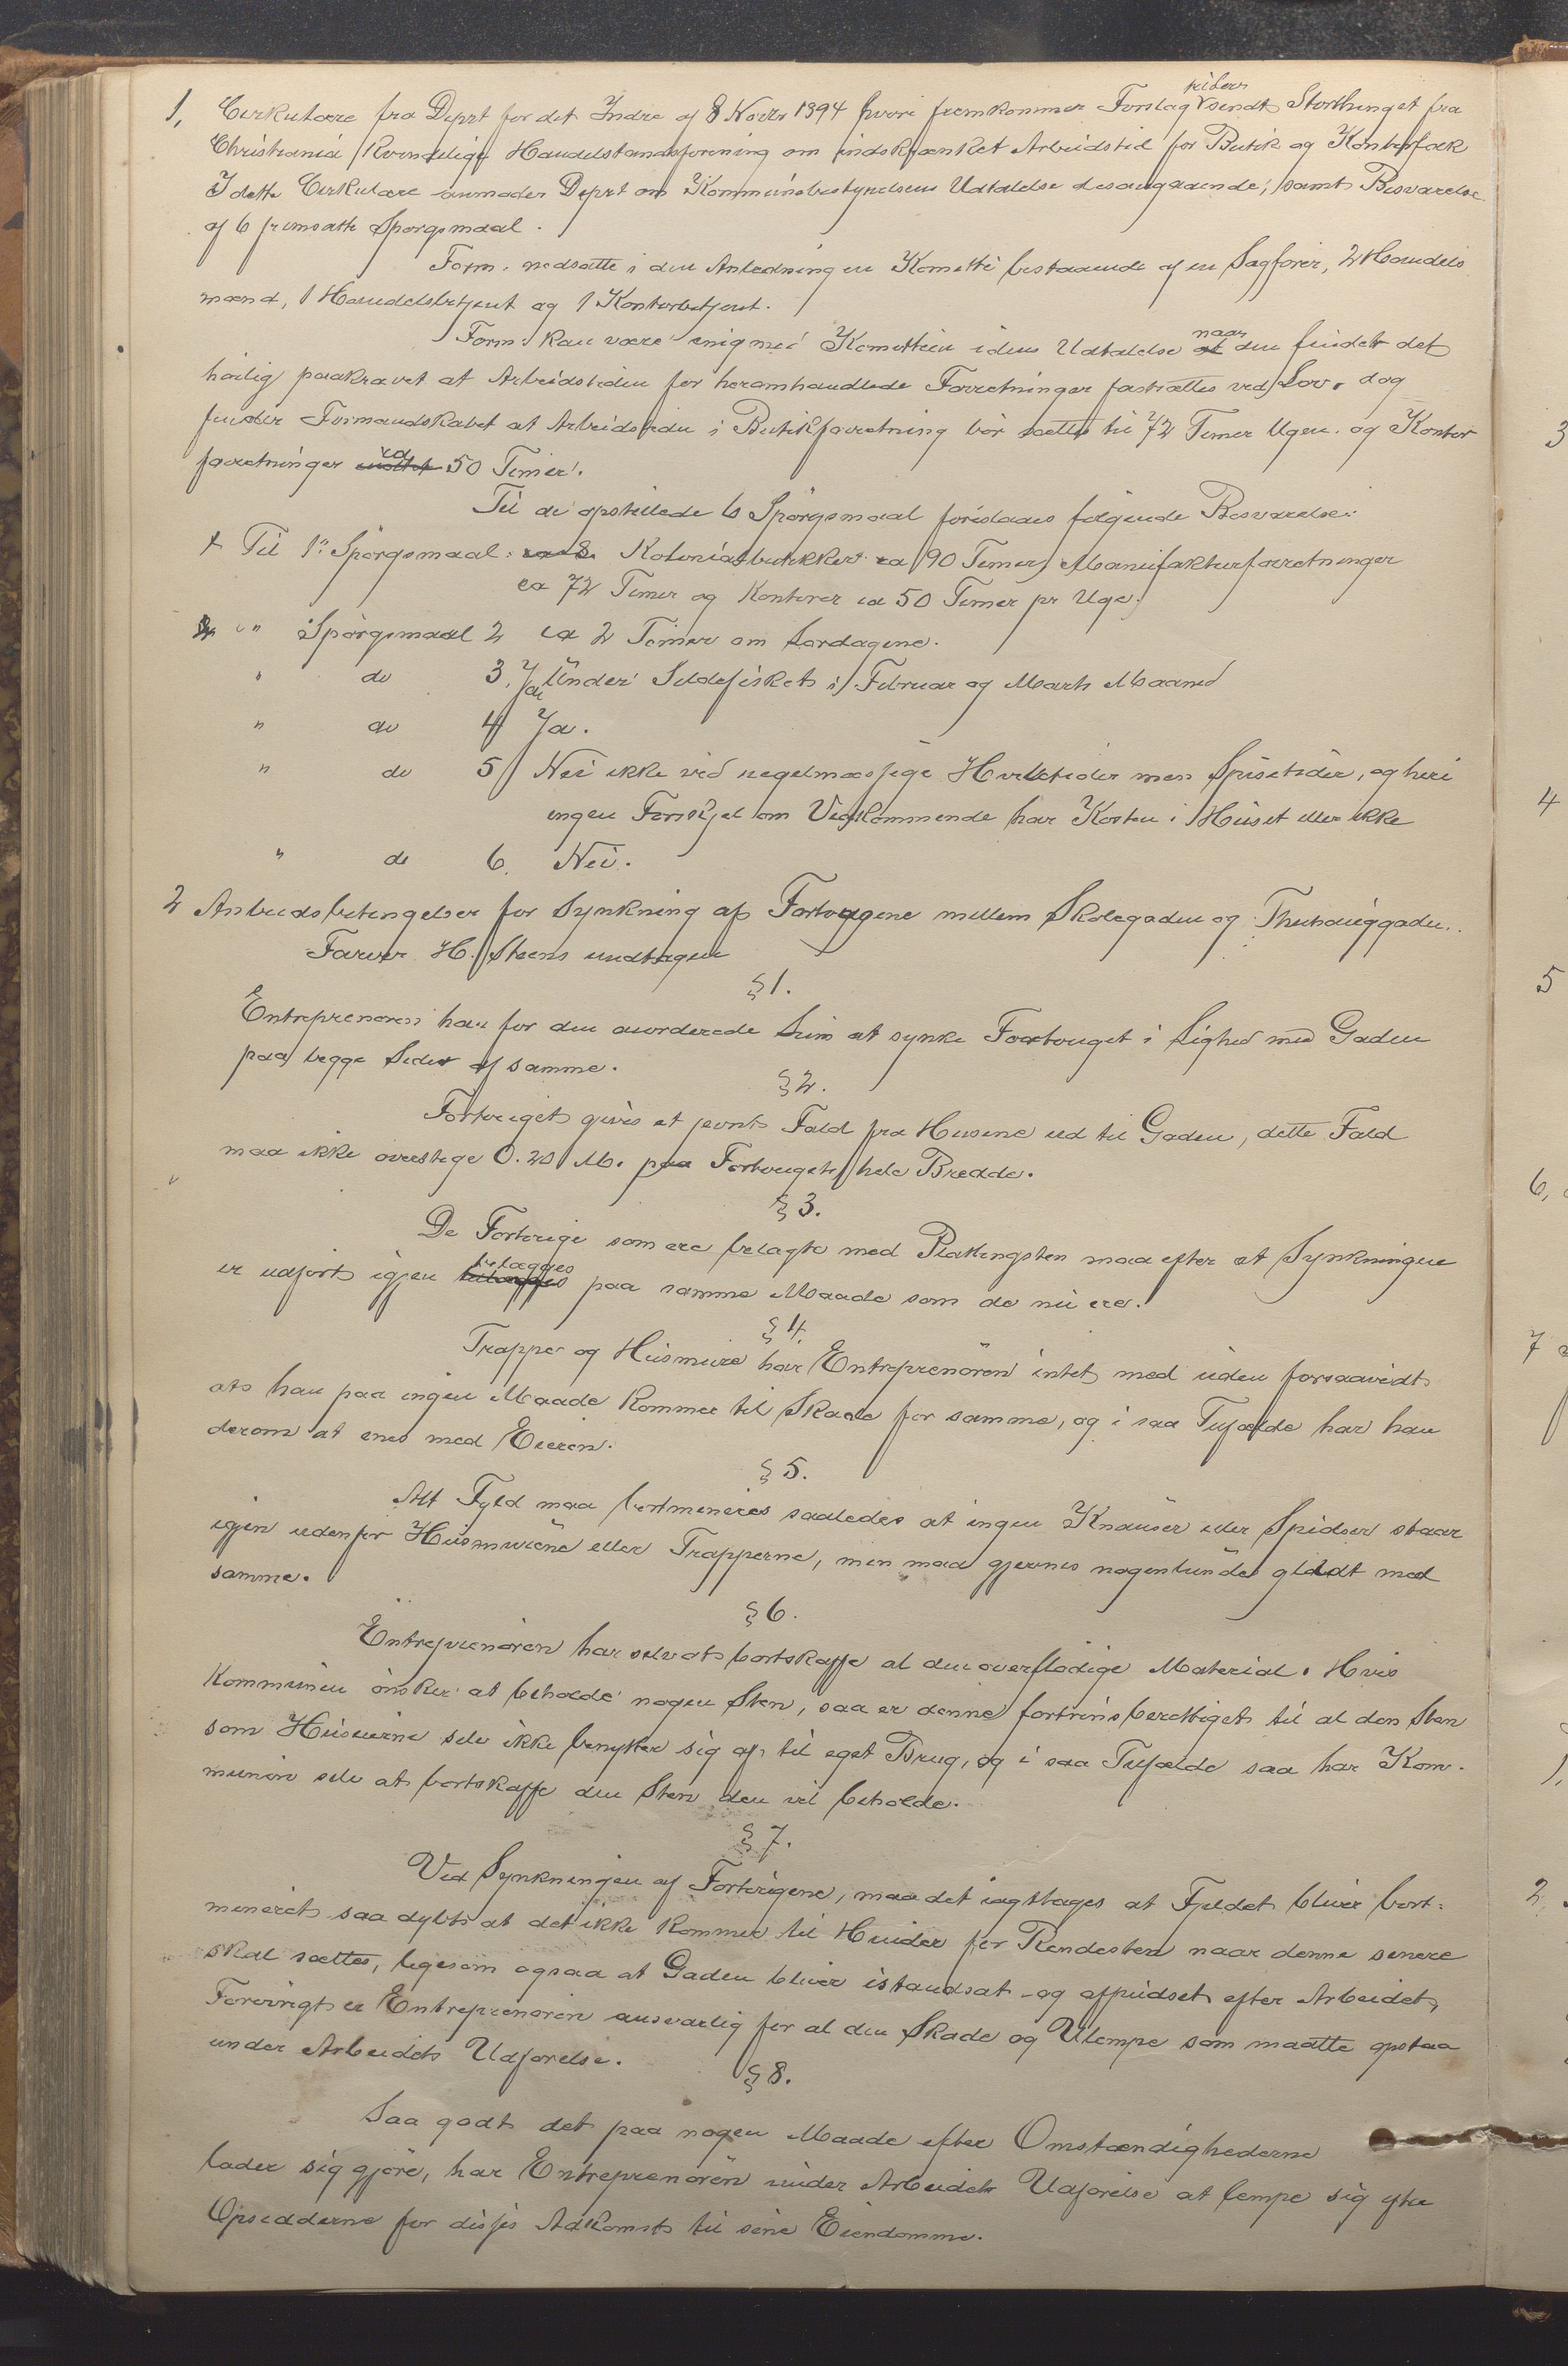 1, Cirkulære fra Deprt for det Indre af 8 Novbr 1894 hvori fremkommer Forslag sendt Storthinget fra
Christiania Kvindelige Handelstandsforening om indskrænket Arbeidstid for Butik og Kontorfolk
I dette Cirkulære anmoder Deprt om Kommunebestyrelsens Udtalelse desangaaende, samt Besvarelse
af 6 fremsatte Spørgsmaal.
Form. nedsatte i den Anledning en Komitte bestaaende af en Sagfører, 2 Handels
mænd, 1 Handelsbetjent og 1 Kontorbetjent.
Form. kan være enig med Komitteen i dens Udtalelse naar den finder det
høilig paakrævet at Arbeidstiden for heromhandlede Forretninger fastsættes ved Lov, dog
finder Formandskabet at Arbeidstiden i Butikforretning bør sættes til 72 Timer Ugen og Kontor
forretninger ca 50 Timer.
Til de opstillede 6 Spørgsmaal foreslaaes følgende Besvarelse:
Til 1ste Spørgsmaal: Kolonialbutikker ca 90 Timer, Manufakturforretninger
ca 72 Timer og Kontorer ca 50 Timer pr Uge.
" Spørgsmaal 2 ca 2 Timer om Lørdagene.
" do 3. Ja Under Sildefisket i Februar og Marts Maaned
" do 4 Ja.
" do 5 Nei ikke ved regelmæssige Hviletider men Spisetider, og heri
ingen Forskjel om Vedkommende har Kosten i Huset eller ikke
" do 6. Nei.
2 Anbudsbetingelser for Synkning af Fortougene mellem Skolegaden og Thuhauggaden.
Farver H. Steens undtagen
§ 1.
Entreprenøren har for den akorderede Sum at synke Fortouget i Lighed med Gaden
paa begge Sider af samme.
§ 2.
Fortouget gives et jevnt Fald fra Husene ud til Gaden, dette Fald
maa ikke overstige 0.20 M. paa Fortougets hele Bredde.
§ 3.
De Fortouge som ere belagte med Plakingsten maa efter at Synkningen
er udført igjen belægges paa samme Maade som de nu ere.
§ 4.
Trapper og Husmure har Entreprenøren intet med uden forsaavidt
at han paa ingen Maade kommer til Skade for samme, og i saa Tilfælde har han
derom at enes med Eieren.
§ 5.
Alt Fjeld maa bortmineres saaledes at ingen Knauser eller Spidser staar
igjen udenfor Husmurene eller Trapperne, men maa gjøres nogenlunde gladt med
samme.
§ 6.
Entreprenøren har selv at bortskaffe al den overflødige Material. Hvis
Kommunen ønsker at beholde nogen Sten, saa er denne fortrinsberettiget til al den Sten
som Huseierne selv ikke benytter sig af til eget Brug, og i saa Tilfælde saa har Kom-
munen selv at bortskaffe den Sten den vil beholde.
§ 7.
Ved Synkningen af Fortougene, maa det iagttages at Fjeldet bliver bort-
mineret saa dybt at det ikke kommer til Hinder for Rendesten naar denne senere
skal sættes, ligesom ogsaa at Gaden bliver istandsat og afpudset efter Arbeidet,
Forøvrigt er Entreprenøren ansvarlig for al den Skade og Ulempe som maatte opstaa
under Arbeidets Udførelse.
§ 8.
Saa godt det paa nogen Maade efter Omstændighederne
lader sig gjøre, har Entreprenøren under Arbeidets Udførelse at lempe sig efter
Opsidderne for disses Adkomst til sine Eiendomme.